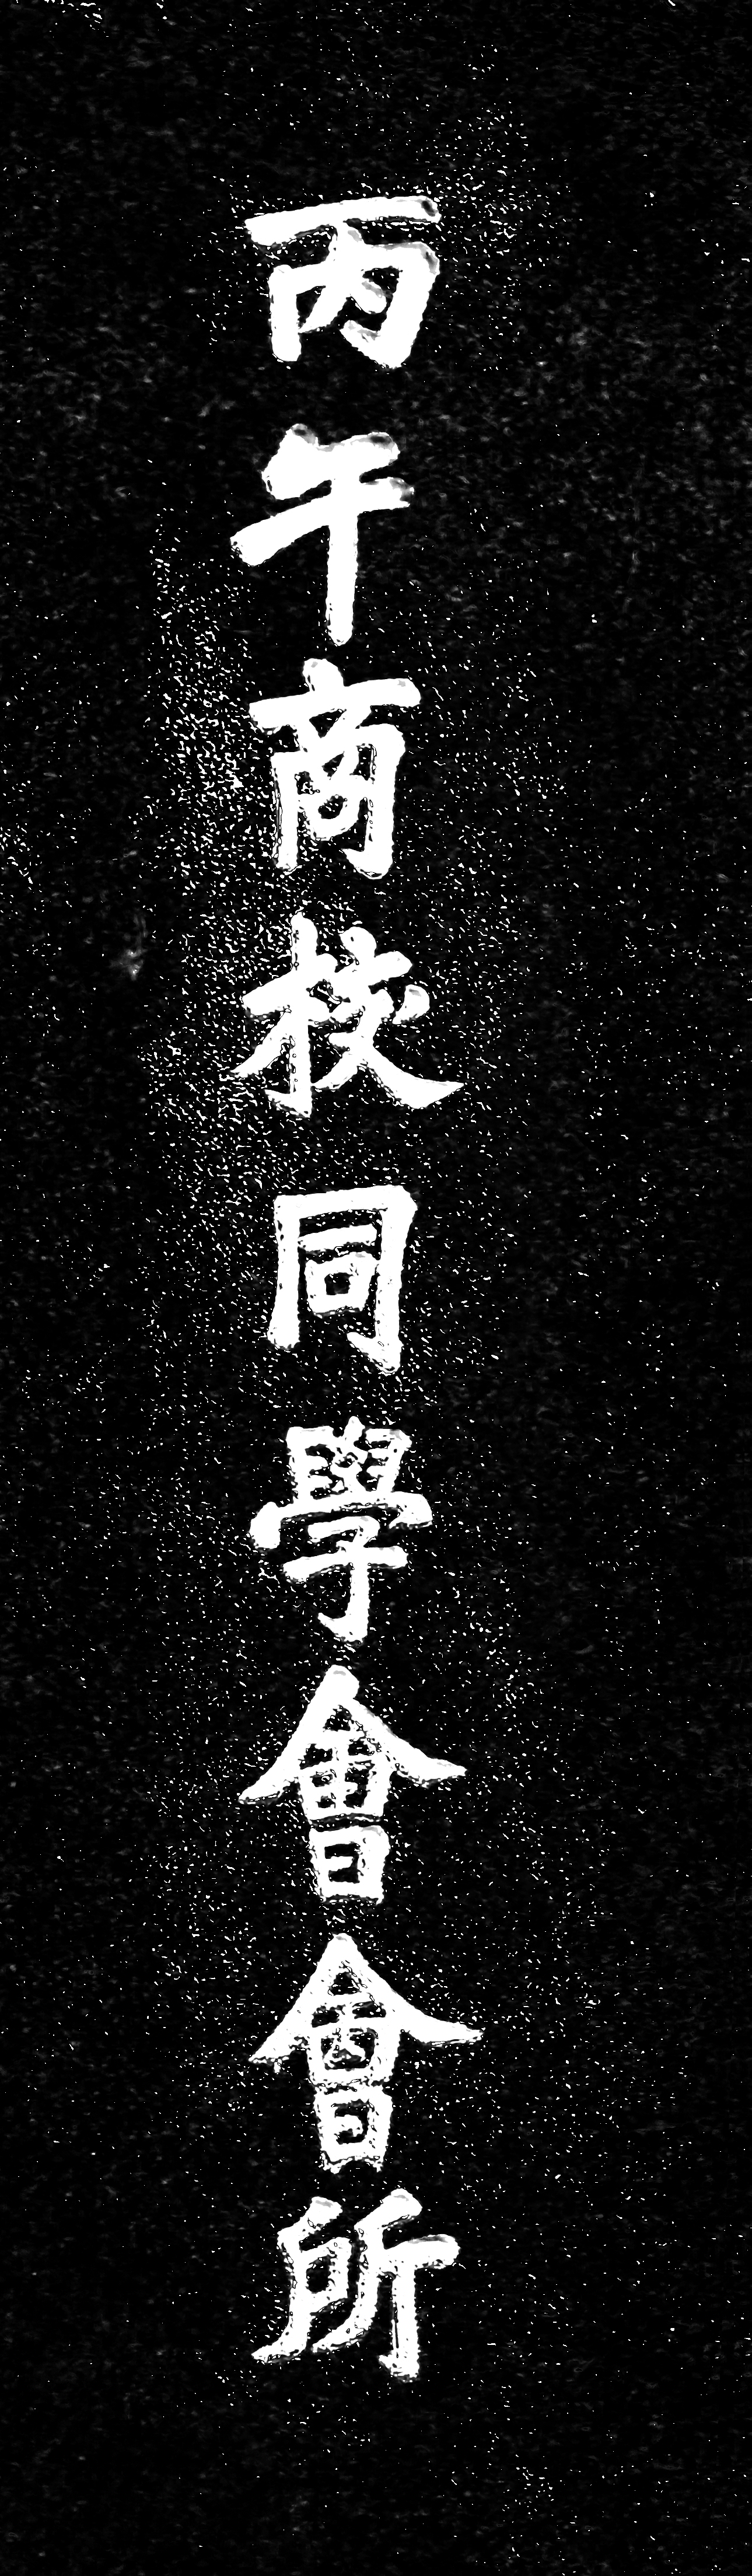 丙午商校同學會會所